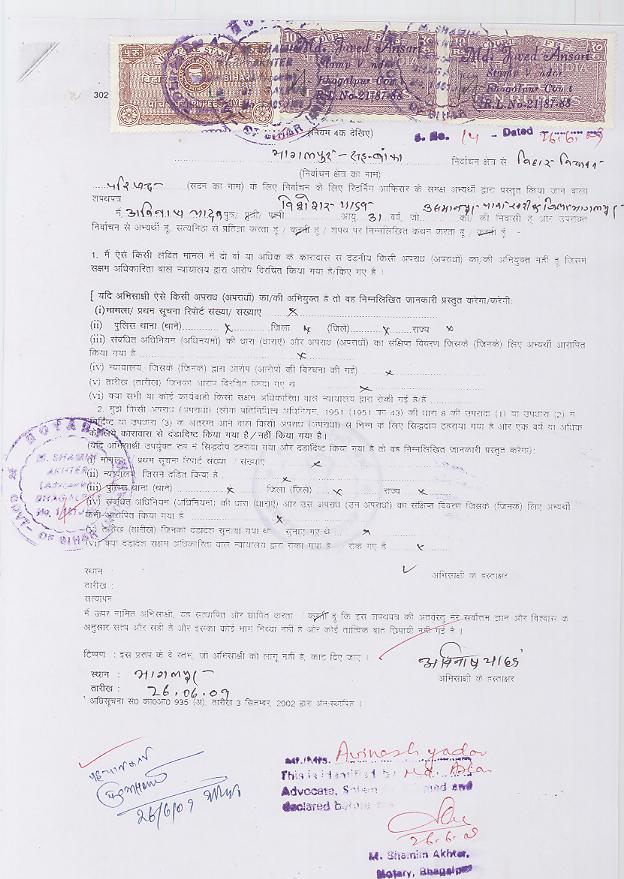 Md. Javed Ansari
Stamp Vendor
Bhagalpur Court
R.L.No-21/87-88
Md. Javed Ansari
Stamp Vendor
Bhagalpur Court
R.L.No-21/87-88
302
(नियम 4क देखिए)
S. No. 14 - Dated 26/6/09
भागलपुर - सह-बांका निर्वाचन क्षेत्र से बिहार विधान
(निर्वाचन क्षेत्र का नाम)
परिषद् (सदन का नाम) के लिए निर्वाचन के लिए रिटर्निंग आफिसर के समक्ष अभ्यर्थी द्वारा प्रस्तुत किया जाने वाला
शपथपत्र
मैं, अविनाश यादव पुत्र/ पुत्री/ पत्नी आयु 31 वर्ष, जो का/ की निवासी हूं और उपरोक्त
निर्वाचन से अभ्यर्थी हूं, सत्यनिष्ठा से प्रतिज्ञा करता हूं / करती हूं / शपथ पर निम्नलिखित कथन करता हूं / करती हूं :-
1. मैं ऐसे किसी लंबित मामले में दो वर्ष या अधिक के कारावास से दंडनीय किसी अपराध (अपराधों) का/की अभियुक्त नहीं हूं जिसमें
सक्षम अधिकारिता वाले न्यायालय द्वारा आरोप विरचित किया गया है/किए गए हैं ।
[ यदि अभिसाक्षी ऐसे किसी अपराध (अपराधों) का/की अभियुक्त है तो वह निम्नलिखित जानकारी प्रस्तुत करेगा/करेगी:
(i) मामला/ प्रथम सूचना रिपोर्ट संख्या/ संख्याएं x
(ii) पुलिस थाना (थाने) x जिला x (जिले) x राज्य x
(iii) संबंधित अधिनियम (अधिनियमों) की धारा (धाराएं) और अपराध (अपराधों) का संक्षिप्त विवरण जिसके (जिनके) लिए अभ्यर्थी आरोपित
किया गया है x
(iv) न्यायालय जिसके (जिनके) द्वारा आरोप (आरोपों की विरचना की गई) x
(v) तारीख (तारीखें) जिनको आरोप विरचित किया गए थे x
(vi) क्या सभी या कोई कार्यवाही किसी सक्षम अधिकारिता वाले न्यायालय द्वारा रोकी गई है/हैं
2. मुझे किसी अपराध (अपराधों) (लोक प्रतिनिधित्व अधिनियम, 1951 (1951 का 43) की धारा 8 की उपधारा (1) या उपधारा (2) में
निर्दिष्ट या उपधारा (3) के अंतर्गत आने वाले किसी अपराध (अपराधों) से भिन्न के लिए सिद्धदोष ठहराया गया है और एक वर्ष या अधिक
के लिए कारावास से दंडादिष्ट किया गया है / नहीं किया गया है।
(यदि अभिसाक्षी उपर्युक्त रूप में सिद्धदोष ठहराया गया और दंडादिष्ट किया गया है तो वह निम्नलिखित जानकारी प्रस्तुत करेगा) :
(i) मामला/ प्रथम सूचना रिपोर्ट संख्या / संख्याएं x
(ii) न्यायालय जिसने दंडित किया है x
(iii) पुलिस थाना (थाने) x जिला (जिले) x राज्य x
(iv) संबंधित अधिनियम (अधिनियमों) की धारा (धाराएं) और उस अपराध (उन अपराधों) का संक्षिप्त विवरण जिसके (जिनके) लिए अभ्यर्थी
को आरोपित किया गया है x
(v) तारीख (तारीखें) जिनको दंडादेश सुनाया गया था / सुनाए गए थे x
(vi) क्या दंडादेश सक्षम अधिकारिता वाले न्यायालय द्वारा रोका गया है / रोके गए हैं x
स्थान :
अभिसाक्षी के हस्ताक्षर
तारीख :
सत्यापन
मैं ऊपर नामित अभिसाक्षी, यह सत्यापित और घोषित करता / करती हूं कि इस शपथपत्र की अंतर्वस्तु मेरे सर्वोत्तम ज्ञान और विश्वास के
अनुसार सत्य और सही है और इसका कोई भाग मिथ्या नहीं है और कोई तात्विक बात छिपायी नहीं गई है ।
टिप्पण : इस प्ररूप के वे स्तंभ, जो अभिसाक्षी को लागू नहीं हैं, काट दिए जाएं ।
अविनाश यादव
स्थान : भागलपुर
अभिसाक्षी के हस्ताक्षर
तारीख : 26.06.09
अधिसूचना सं० का०आ० 935 (अ), तारीख 3 सितम्बर, 2002 द्वारा अंतःस्थापित ।
NOTARY
M. SHAMIM
AKHTER
(Advocate)
BHAGALPUR
GOVT. OF BIHAR
26/6/09
Mr/Mrs. Avinash yadav
This is identified by Md.
Advocate, and
declared before me
26.6.09
M. Shamim Akhter.
Notary, Bhagalpur